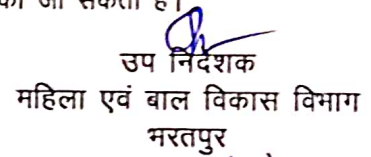 जा सकता है।
उप निदेशक
महिला एवं बाल विकास विभाग
भरतपुर